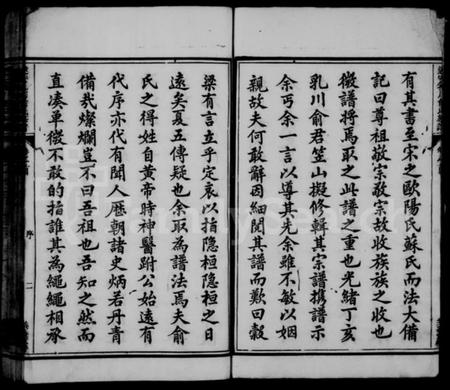 有其書至宋之歐陽氏蘇氏而法大備
記曰尊祖敬宗敬宗故收族族之收也
微譜將焉取之此譜之重也光緒丁亥
乳川俞君笠山擬修輯其宗譜攜譜示
余丐余一言以導其先余雖不敏以姻
親故夫何敢辭因細閱其譜而歎曰穀
梁有言立乎定哀以指隱桓隱桓之日
遠矣夏五傳疑也余取為譜法焉夫俞
氏之得姓自黃帝時神醫跗公始遠有
代序亦代有聞人歷朝諸史炳若丹青
備哉燦爛豈不曰吾祖也吾知之然而
直湊單微不敢的指誰其為繩繩相承
序
二